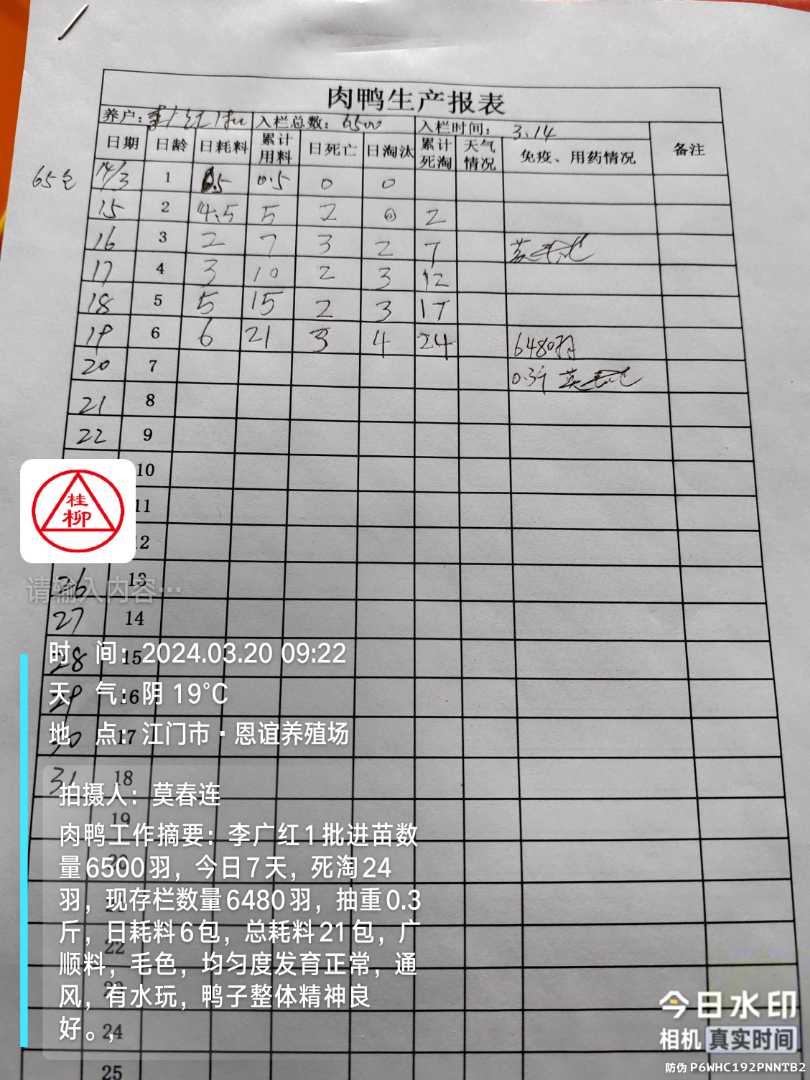 肉鸭生产报表
养户: 入栏总数: 6500 入栏时间: 3.14
日期 日龄 日耗料 累计用料 日死亡 日淘汰 累计死淘 天气情况 免疫、用药情况 备注
65包 14/3 1 0.5 0 0
15 2 4.5 5 2 0 2
16 3 2 7 3 2 7
17 4 3 10 2 3 12
18 5 5 15 2 3 17
19 6 6 21 3 4 24 6480羽
20 7 0.3斤
21 8
22 9
10
11
12
26 13
27 14
28 15
29 16
30 17
31 18
19
20
22
24
25
桂柳
请输入内容…
时 间: 2024.03.20 09:22
天 气: 阴 19°C
地 点: 江门市·恩谊养殖场
拍摄人: 莫春连
肉鸭工作摘要: 李广红1批进苗数
量6500羽，今日7天，死淘24
羽，现存栏数量6480羽，抽重0.3
斤，日耗料6包，总耗料21包，广
顺料，毛色，均匀度发育正常，通
风，有水玩，鸭子整体精神良
好。,
今日水印
相机 真实时间
防伪 P6WHC192PNNTB2